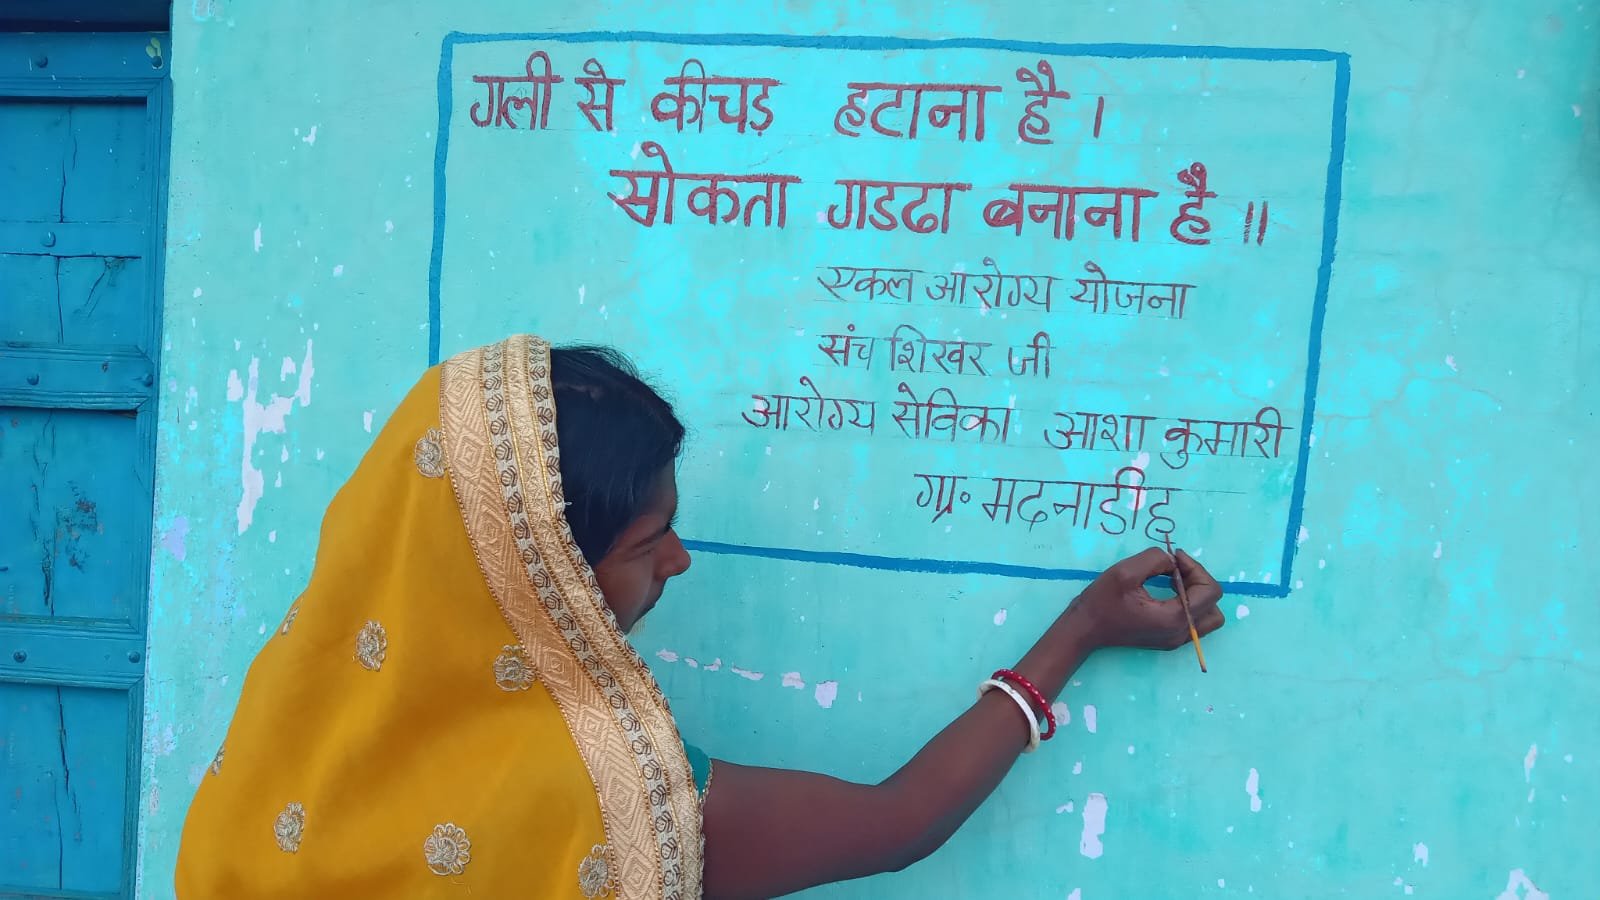 गली से कीचड़ हटाना है।
सोकता गडढा बनाना है॥
एकल आरोग्य योजना
संच शिखर जी
आरोग्य सेविका आशा कुमारी
ग्रा॰ मदनाडीह